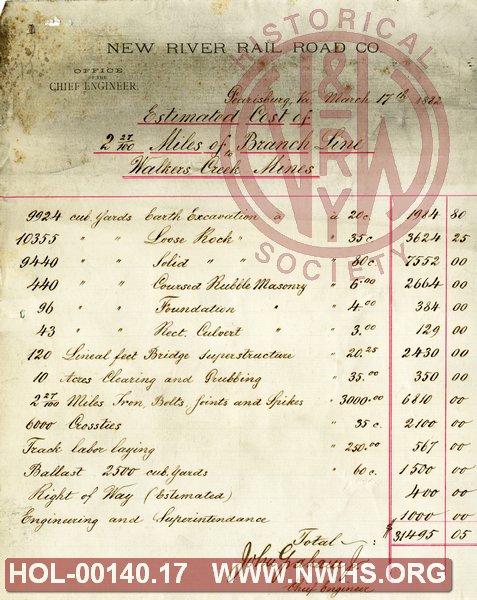 NEW RIVER RAIL ROAD CO.
OFFICE
OF THE
CHIEF ENGINEER.
Pearisburg, Va. March 17th 1882
Estimated Cost of
2 27/100 Miles of Branch Line
to
Walkers Creek Mines
9924 cub. Yards Earth Excavation a a 20c. 1984 80
10355 " " Loose Rock " " 35c. 3624 25
9440 " " Solid " " " 80c. 7552 00
440 " " Coursed Rubble Masonry " 6.00 2664 00
96 " " Foundation " " 4.00 384 00
43 " " Rect. Culvert " " 3.00 129 00
120 Lineal feet Bridge Superstructure " 20.25 2430 00
10 Acres Clearing and Grubbing " 35.00 350 00
2 27/100 Miles Iron, Bolts, Joints and Spikes " 3000.00 6810 00
6000 Crossties " 35c. 2100 00
Track labor laying " 250.00 567 00
Ballast 2500 cub. Yards " 60c. 1500 00
Right of Way (Estimated) 400 00
Engineering and Superintendance 1000 00
Total $ 31495 05
John
Chief Engineer
HISTORICAL
N&W RY
SOCIETY
HOL-00140.17 WWW.NWHS.ORG